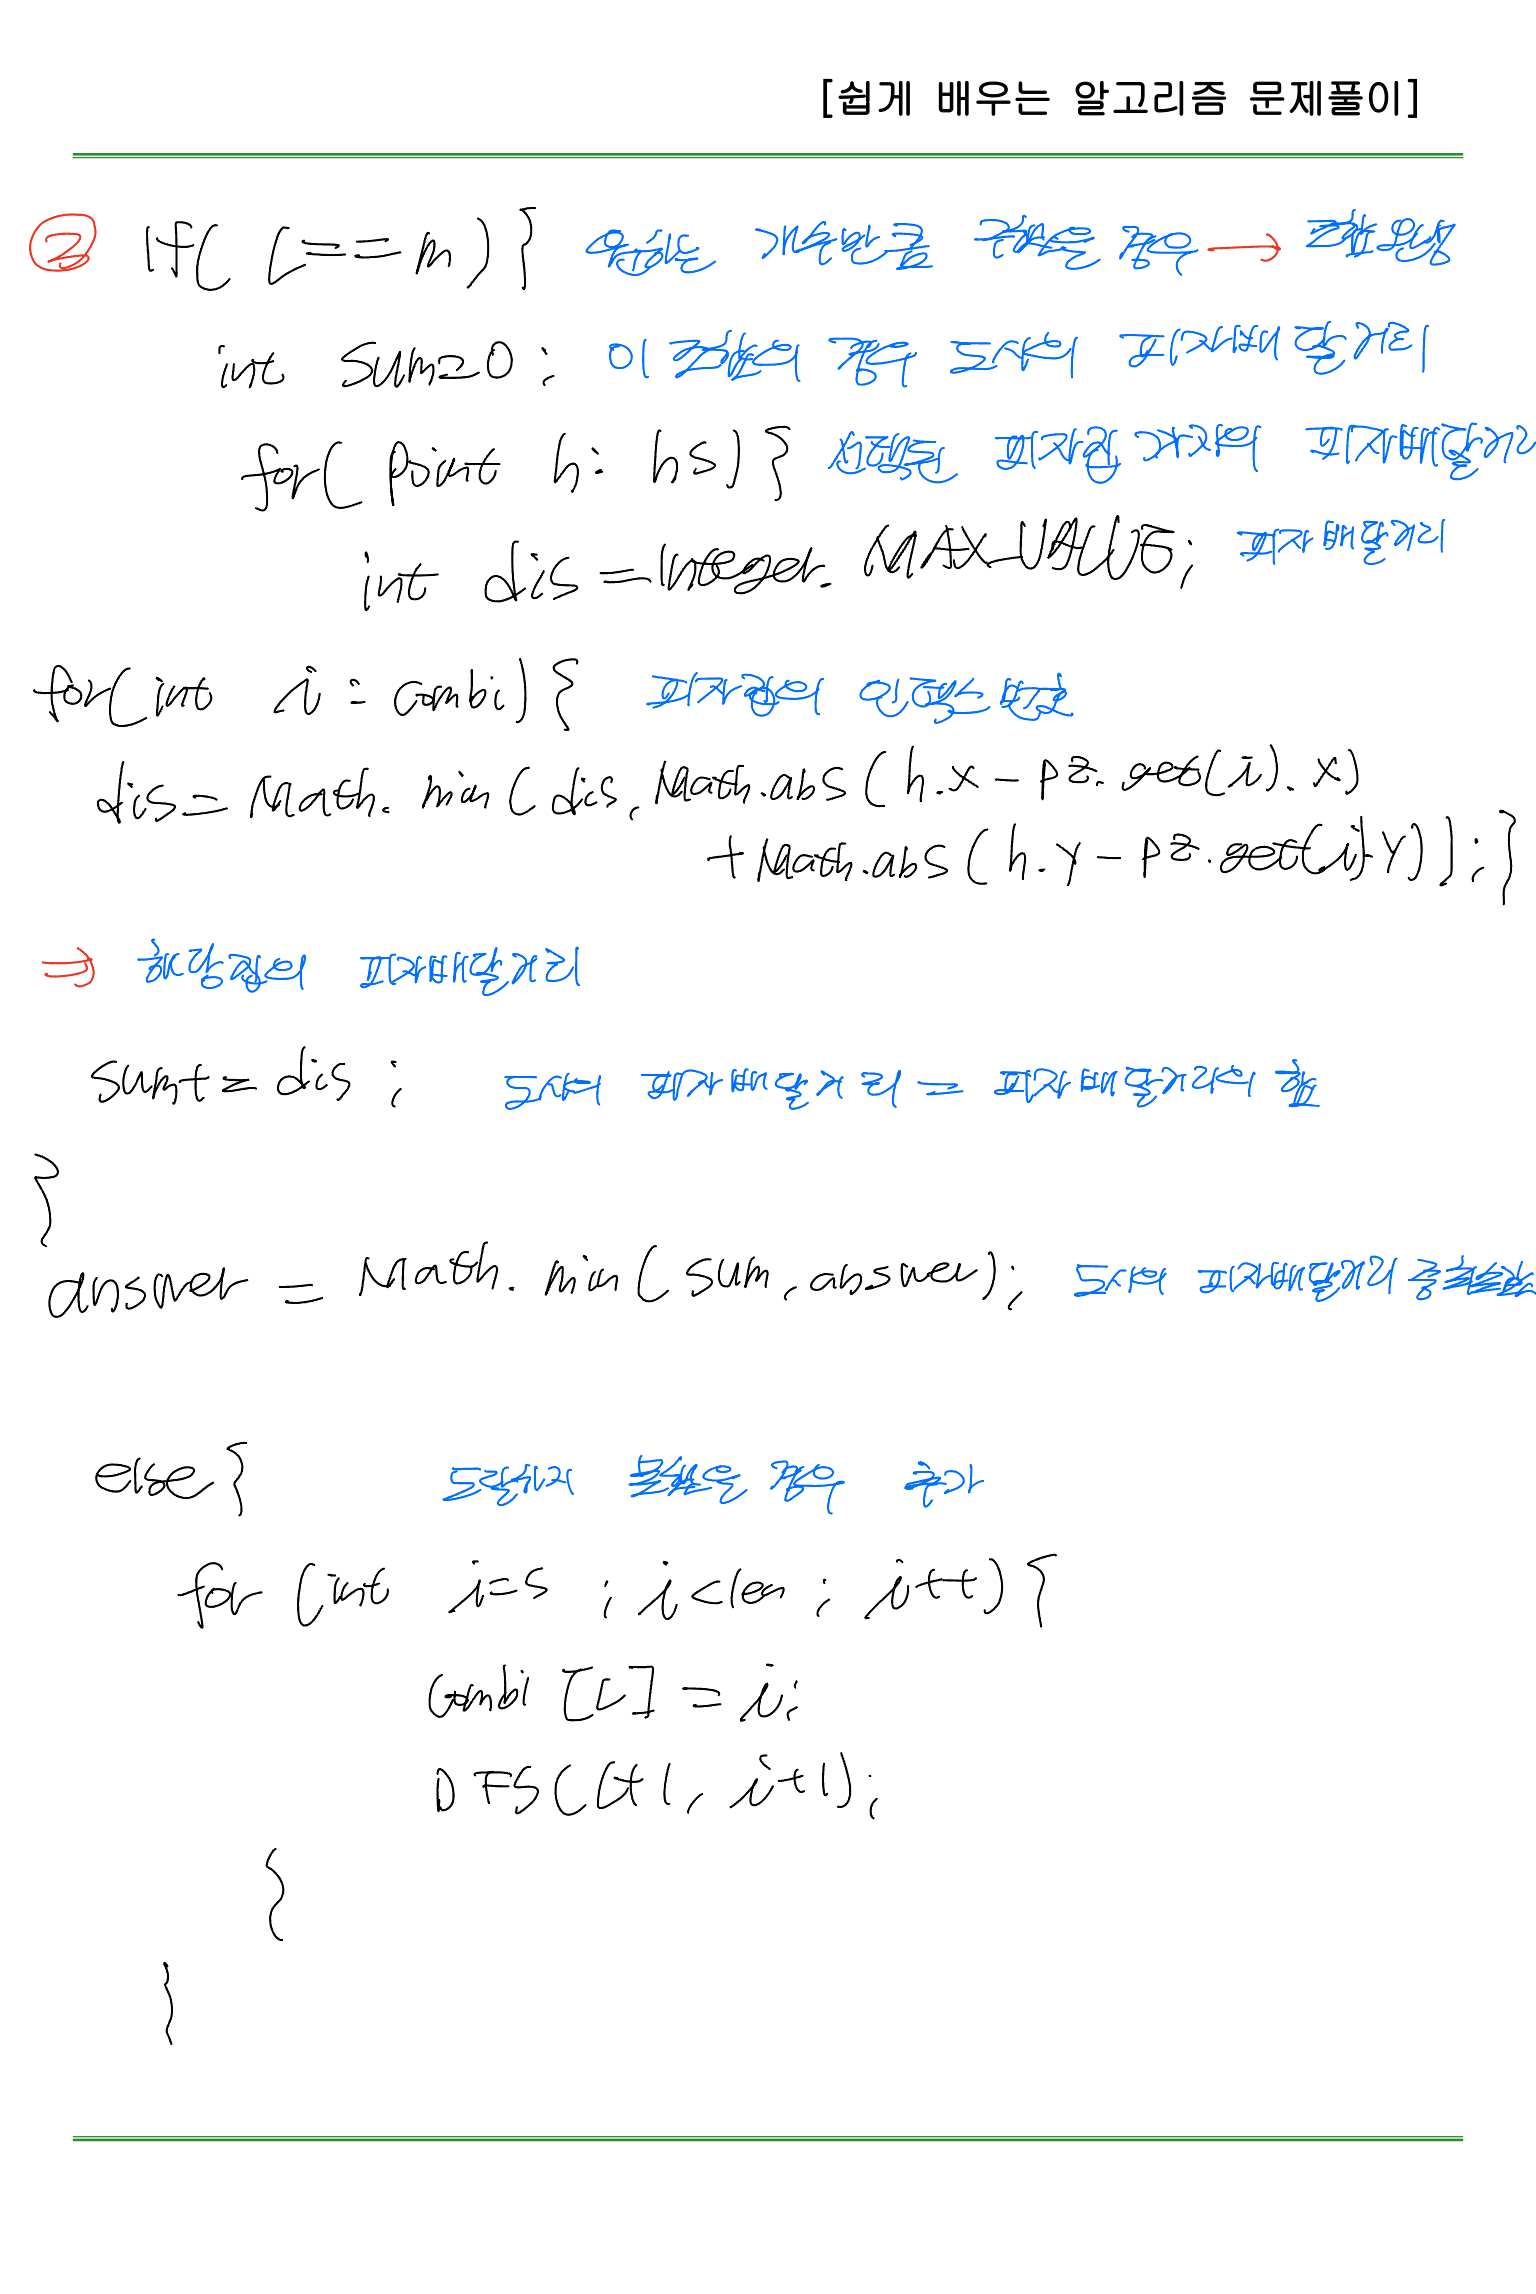 [쉽게 배우는 알고리즘 문제풀이]
② if( L==m ){ 원하는 개수만큼 구했을 경우 → 조합 완성
int sum=0; 이 조합의 경우 도시의 피자배달거리
for( Point h: hs){ 선택된 피자집 각자의 피자배달거리
int dis = Integer. MAX_VALUE; 피자배달거리
for(int i : combi){ 피자집의 인덱스 번호
dis = Math. min( dis, Math.abs( h.x - pz. get(i). x)
+ Math.abs( h.y - pz.get(i).y));}
⇒ 해당집의 피자배달거리
sum += dis ; 도시의 피자배달거리 = 피자배달거리의 합
}
answer = Math. min( sum, answer); 도시의 피자배달거리 중 최솟값
else{ 도달하지 못했을 경우 추가
for (int i=s ; i<len ; i++){
combi [L] = i;
DFS(L+1, i+1);
}
}